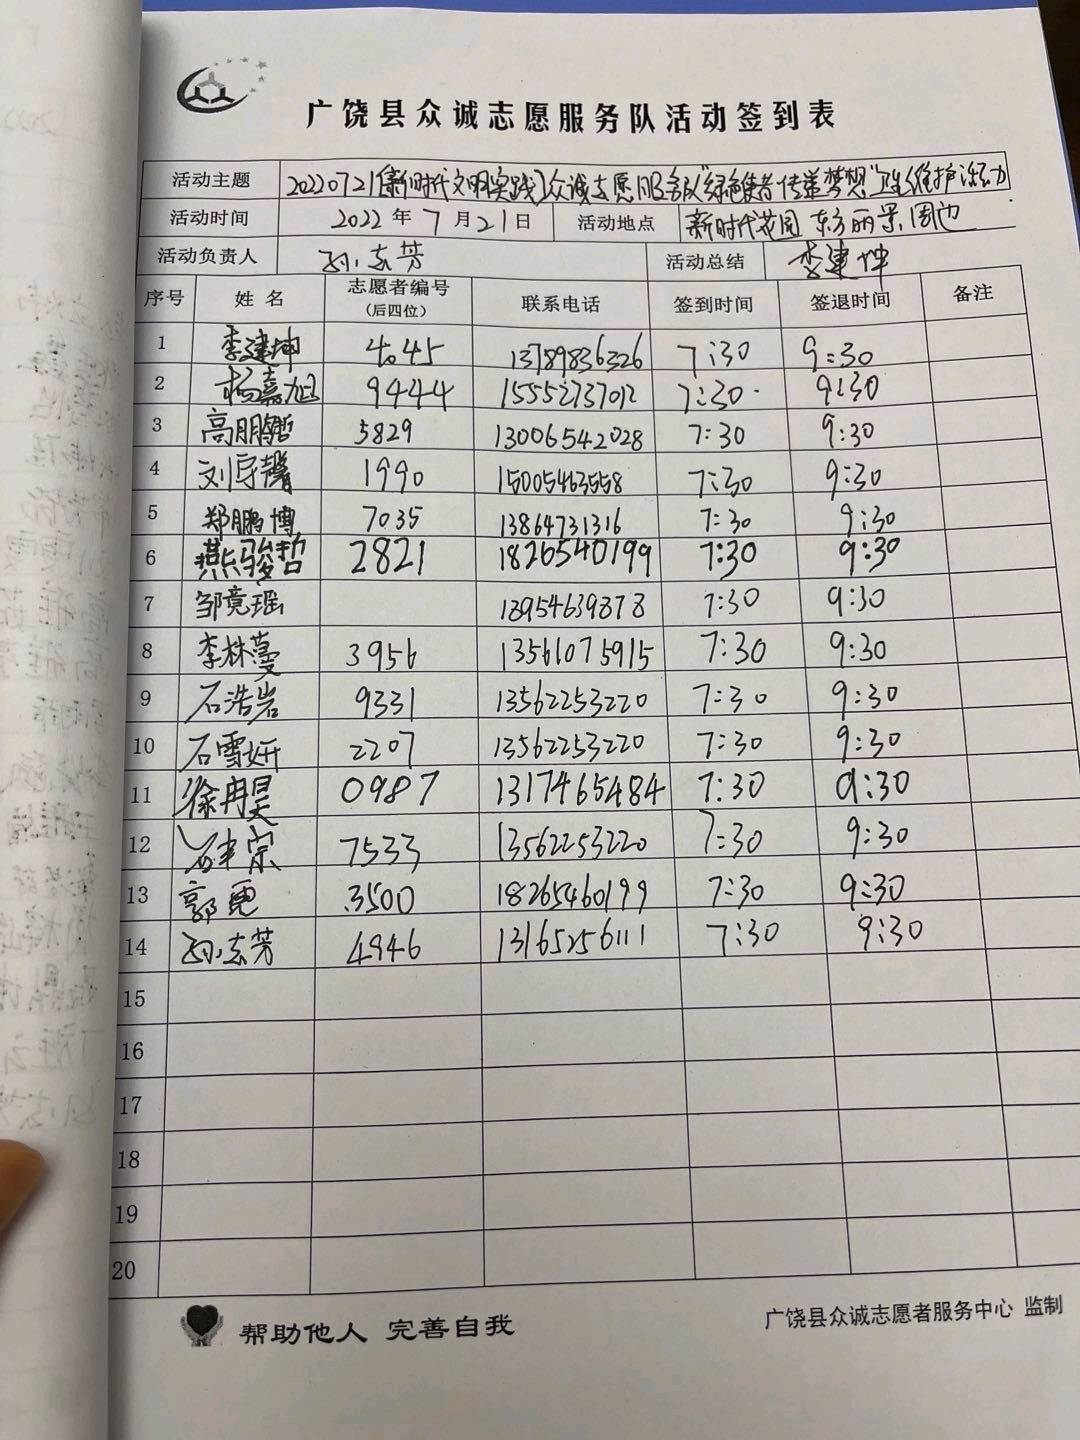 广饶县众诚志愿服务队活动签到表
活动主题 20220721[新时代文明实践]众诚志愿服务队"绿色使者 传递梦想"卫生维护活动
活动时间 2022年7月21日 活动地点 新时代花园 东方丽景周边
活动负责人 孙志芳 活动总结 李建坤
序号 姓名 志愿者编号(后四位) 联系电话 签到时间 签退时间 备注
1 李建坤 4045 13789836326 7:30 9:30
2 杨嘉旭 9444 15552737012 7:30 9:30
3 高鹏皓 5829 13006542028 7:30 9:30
4 刘宇馨 1990 15005463558 7:30 9:30
5 郑鹏博 7035 13864731316 7:30 9:30
6 燕骏哲 2821 1826540199 7:30 9:30
7 邹竟瑶 13954639878 7:30 9:30
8 李林蔓 3956 13561075915 7:30 9:30
9 石浩岩 9331 13562253220 7:30 9:30
10 石雪妍 2207 13562253220 7:30 9:30
11 徐冉昊 0987 1317465484 7:30 9:30
12 宗 7533 13562253220 7:30 9:30
13 郭 3500 18265460199 7:30 9:30
14 孙志芳 4946 13165256111 7:30 9:30
15
16
17
18
19
20
帮助他人 完善自我
广饶县众诚志愿者服务中心 监制